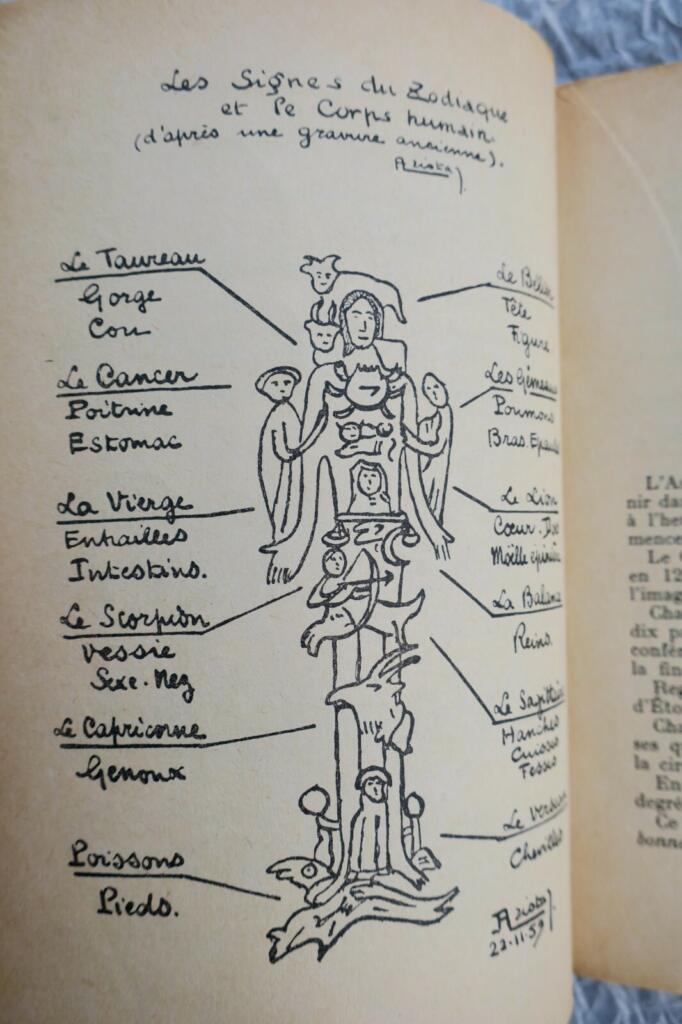 Les Signes du Zodiaque
et le Corps humain
(d'après une gravure ancienne).
Le Taureau
Gorge
Cou
Le Cancer
Poitrine
Estomac
La Vierge
Entrailles
Intestins.
Le Scorpion
Vessie
Sexe. Nez
Le Capricorne
Genoux
Poissons
Pieds.
Le
Tête
Figure
Les Gémeaux
Poumons
Bras.
Le Lion
Cœur.
Moëlle
La
Reins.
Le
Hanches
Cuisses
Fesses
Le
Chevilles
22.11.59
nir
à l'heu
mence
Le
en 12
l'imag
Cha
dix p
confé
la fin
Reg
d'Éto
Cha
ses q
la cir
En
degré
Ce
bonn